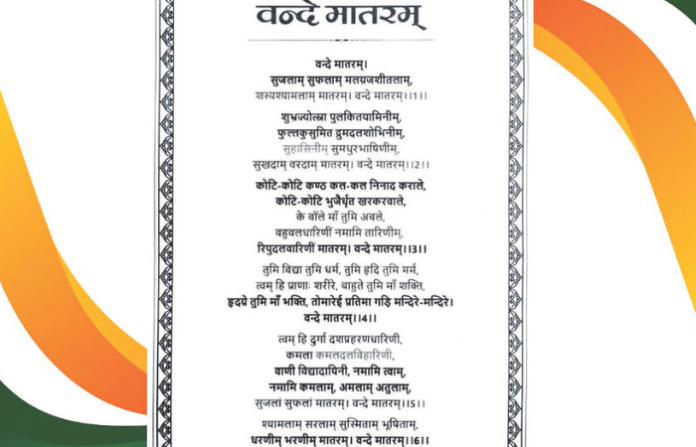 वन्दे मातरम्
वन्दे मातरम्।
सुजलाम् सुफलाम् मलयजशीतलाम्,
शस्यश्यामलाम् मातरम्। वन्दे मातरम्।।1।।
शुभ्रज्योत्स्ना पुलकितयामिनीम्,
फुल्लकुसुमित द्रुमदलशोभिनीम्,
सुहासिनीम् सुमधुरभाषिणीम्,
सुखदाम् वरदाम् मातरम्। वन्दे मातरम्।।2।।
कोटि-कोटि कण्ठ कल-कल निनाद कराले,
कोटि-कोटि भुजैर्धृत खरकरवाले,
के बॉले माँ तुमि अबले,
बहुबलधारिणीं नमामि तारिणीम्,
रिपुदलवारिणीं मातरम्। वन्दे मातरम्।।3।।
तुमि विद्या तुमि धर्म, तुमि हृदि तुमि मर्म,
त्वम् हि प्राणाः शरीरे, बाहुते तुमि माँ शक्ति,
हृदये तुमि माँ भक्ति, तोमारेई प्रतिमा गड़ि मन्दिरे-मन्दिरे।
वन्दे मातरम्।।4।।
त्वम् हि दुर्गा दशप्रहरणधारिणी,
कमला कमलदलविहारिणी,
वाणी विद्यादायिनी, नमामि त्वाम्,
नमामि कमलाम्, अमलाम् अतुलाम्,
सुजलां सुफलां मातरम्। वन्दे मातरम्।।5।।
श्यामलाम् सरलाम् सुस्मिताम् भूषिताम्,
धरणीम् भरणीम् मातरम्। वन्दे मातरम्।।6।।